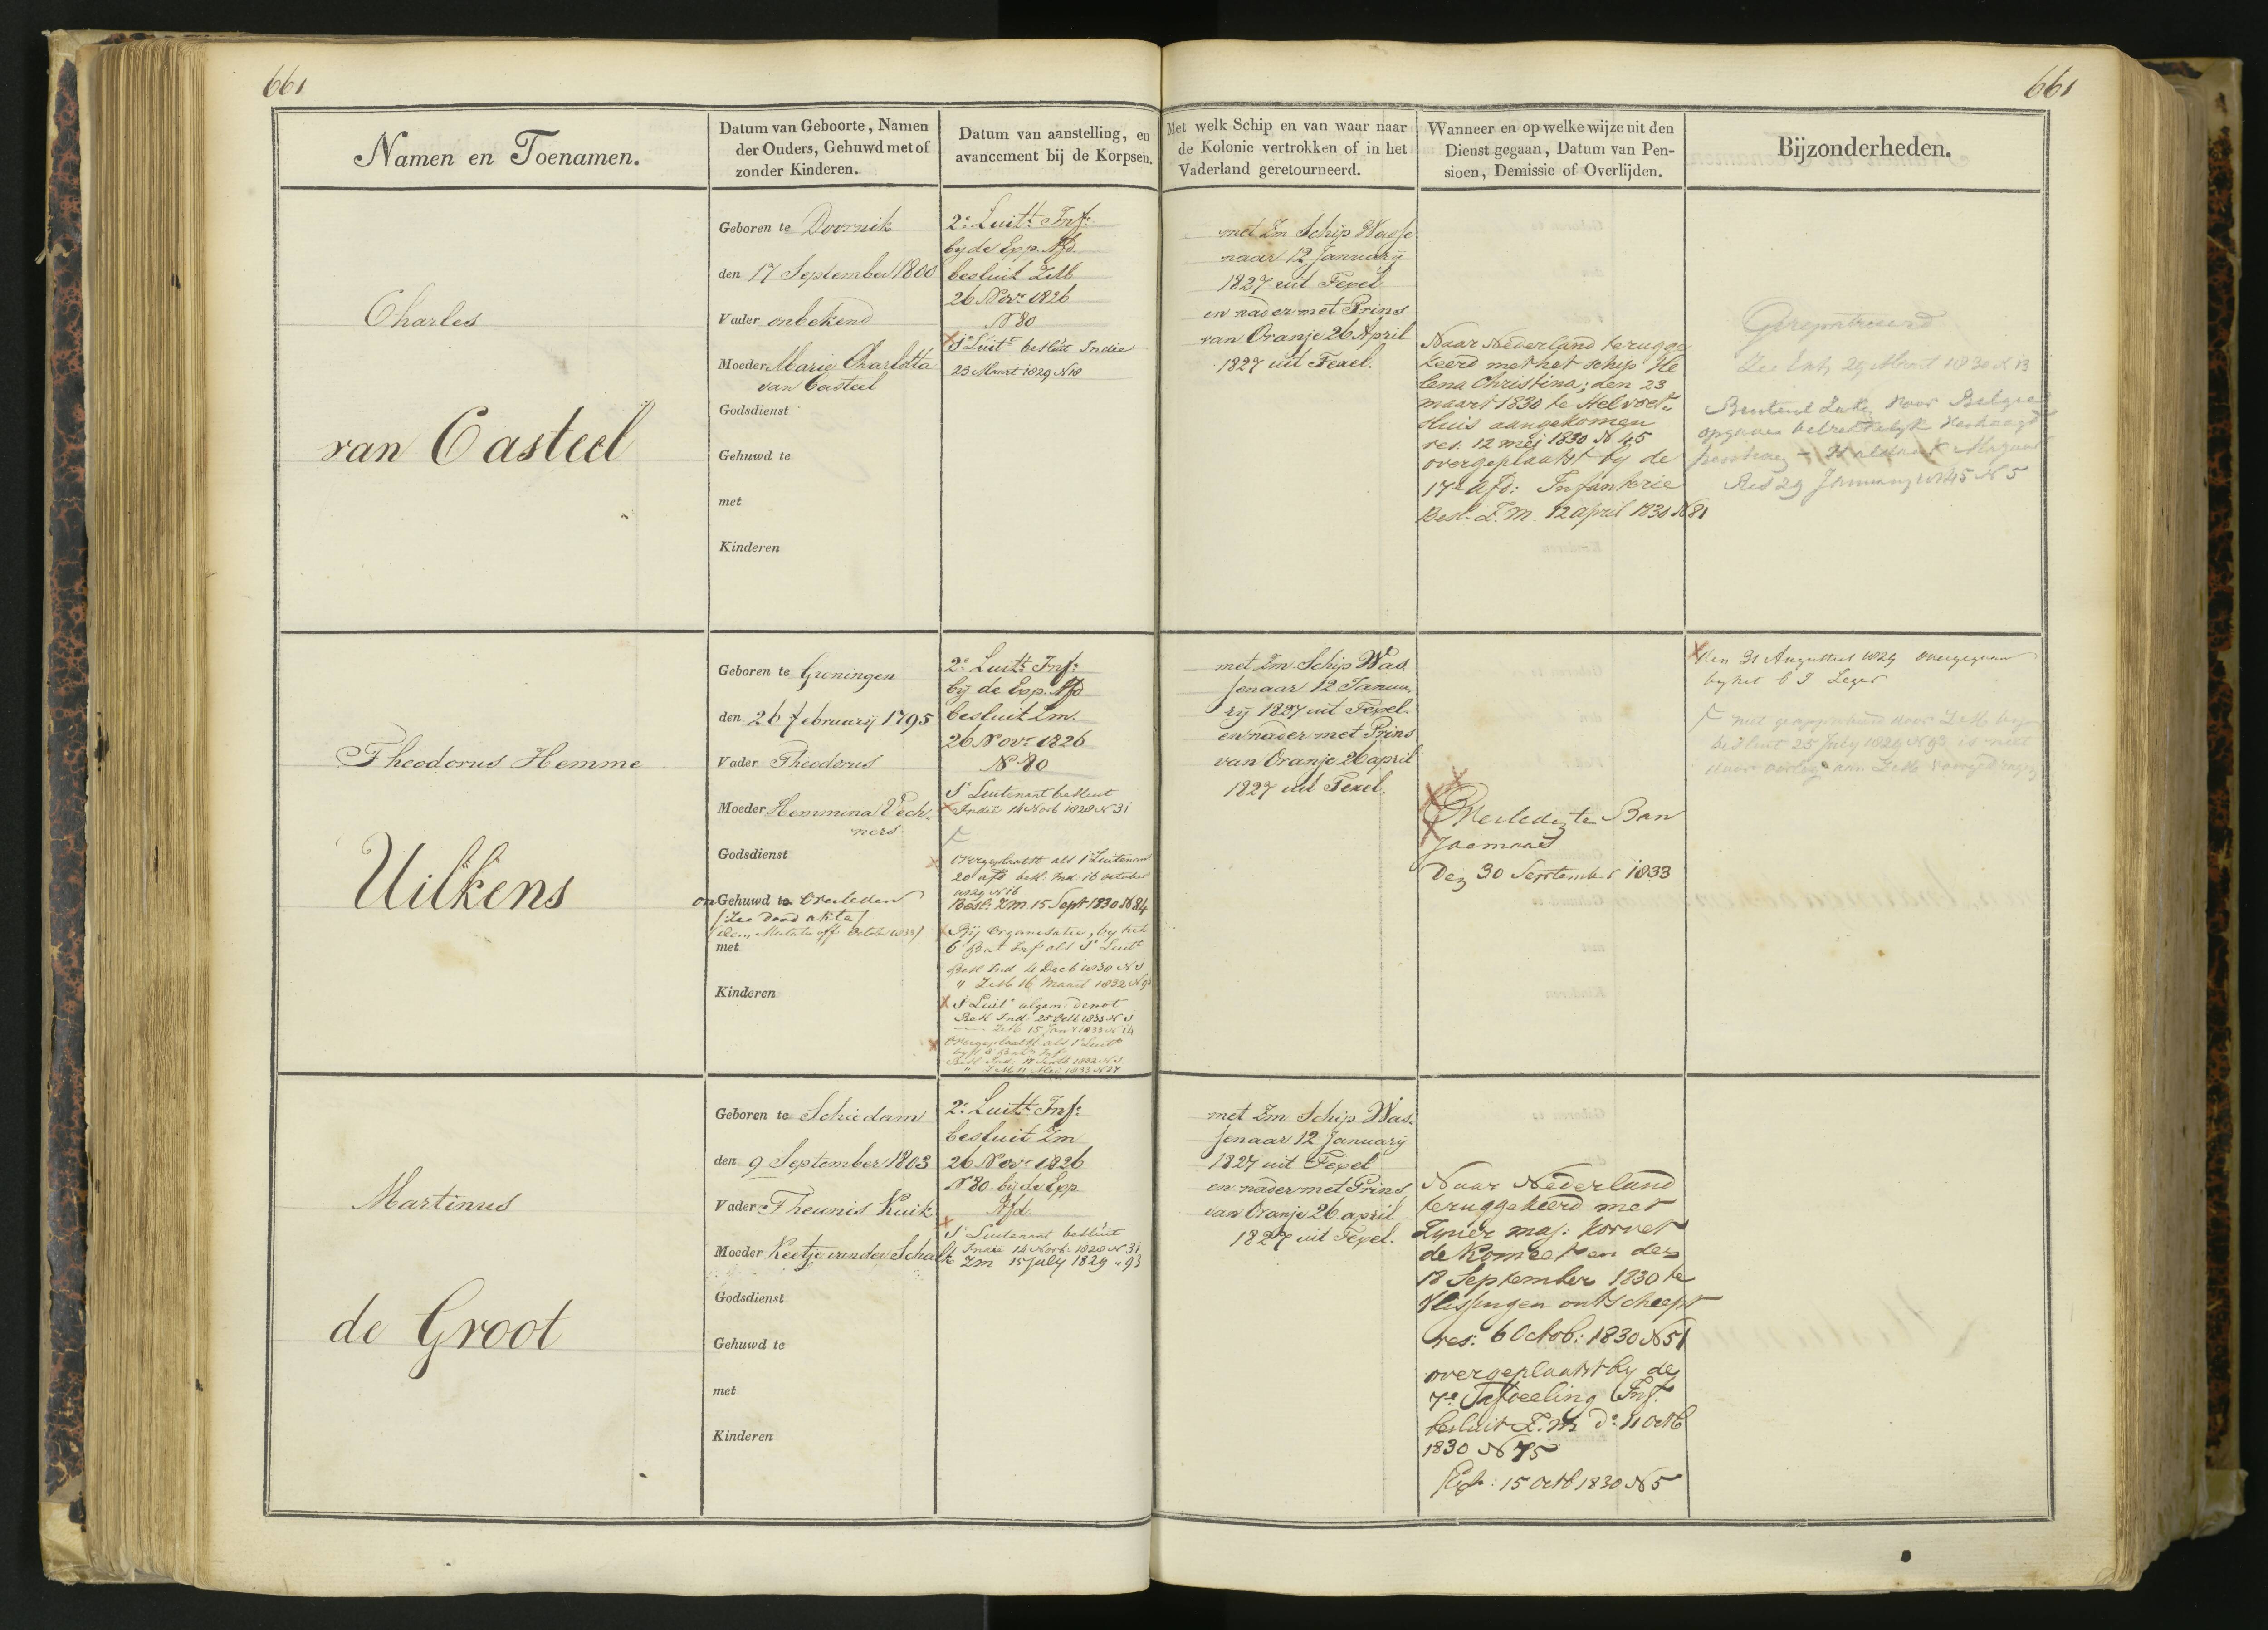 661
661
Namen en Toenamen.
Datum van Geboorte, Namen
der Ouders, Gehuwd met of
zonder Kinderen.
Datum van aanstelling, en
avancement bij de Korpsen.
Met welk Schip en van waar naar
de Kolonie vertrokken of in het
Vaderland geretourneerd.
Wanneer en op welke wijze uit den
Dienst gegaan, Datum van Pen-
sioen, Demissie of Overlijden.
Bijzonderheden.
Charles
van Casteel
Geboren te Doornik
den 17 September 1800
Vader onbekend
Moeder Marie Charlotta
van Casteel
Godsdienst
Gehuwd te
met
Kinderen
2e Luitt. Inf:
bij de Exp. Afd.
besluit ZM
26 Novr 1826
N 80
1e Luitt besluit Indie
23 Maart 1829 N 18
met Zm Schip Wasse
naar 12 January
1827 uit Texel
en nader met Prins
van Oranje 26 April
1827 uit Texel.
Naar Nederland terugge
keerd met het schip He
lena Christina; den 23
maart 1830 te Helvoet„
sluis aangekomen
res. 12 mei 1830 N 45
overgeplaatst by de
17e Afd: Infanterie
Besl. Z.M. 12 april 1830 N 81
Gerepatrieerd
29 Maart 1830 N 13
voor Belgie
opgave betrekkelyk
Res 29 January 1845 N 5
Theodorus Hemme
Uilkens
Geboren te Groningen
den 26 february 1795
Vader Theodorus
Moeder Hemmina Vech-
ners
Godsdienst
on Gehuwd te Overleden
/Zie dood akte/
/Idem Mutatie off October 1833/
met
Kinderen
2e Luitt. Inf:
bij de Exp. Afd
besluit Zm.
26 Novr 1826
N 80
1e Luitenant besluit
Indie 14 Novb 1828 N 31
Overgeplaatst als 1e Luitenant
20 afd besl. Ind. 16 october
1829 N 16
Besl. ZM. 15 Sept 1830 N 84
Bij Organisatie, by het
6e Bat Inf als 1e Luitt
Besl Ind 4 Decb 1830 N 1
" ZM 16 Maart 1832 N 9
1e Luitt algem: Depot
Besl Ind. 25 Octb 1832 N 1
ZM 15 Jan 1833 N 14
Overgeplaatst als 1e Luitt
" ZM 11 Mei 1833 N 27
met Zm. Schip Was
senaar 12 Janua.
rij 1827 uit Texel.
en nader met Prins
van Oranje 26 april
1827 uit Texel.
Overleden te Ban
Joemaas
Den 30 September 1833
Den 31 Augustus 1829 overgegaan
by het O I Leger
niet geapprobeerd door ZM by
besluit 25 July 1829 N 93 is niet
Martinus
de Groot
Geboren te Schiedam
den 9 September 1803
Vader Theunis Kuik
Moeder Keetje van der Schalk
Godsdienst
Gehuwd te
met
Kinderen
2e Luitt. Inf:
besluit Zm
26 Novr 1826
N 80. bij de Exp
Afd.
1e Luitenant besluit
Indie 14 Novb. 1828 N 31
Zm 15 July 1829 " 93
met Zm. Schip Was.
senaar 12 January
1827 uit Texel
en nader met Prins
van Oranje 26 april
1827 uit Texel.
Naar Nederland
teruggekeerd met
Zyner maj: korvet
de Komeet en den
18 September 1830 te
Vlissingen ontscheept
res: 6 Octob: 1830 N 51
overgeplaatst by de
7e Afdeeling Inf.
besluit Z.M. do 11 Octb
1830 N 75
15 Octb 1830 N 5